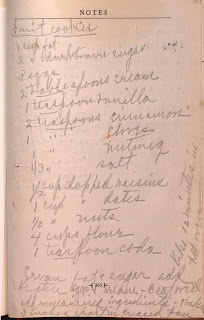 NOTES
Fruit cookies
1 cup fat
2 " dark brown sugar
3 eggs
2 tablespoons cream
1 teaspoon vanilla
2 teaspoons cinnamon
1 " cloves
1 " nutmeg
1/3 " salt
1/2 cup chopped raisins
1 cup " dates
1/2 " nuts
4 cups flour
1 teaspoon soda
Cream fat & sugar add
beaten eggs
add
inches apart on greased pan
Bake 12 minutes in
hot oven